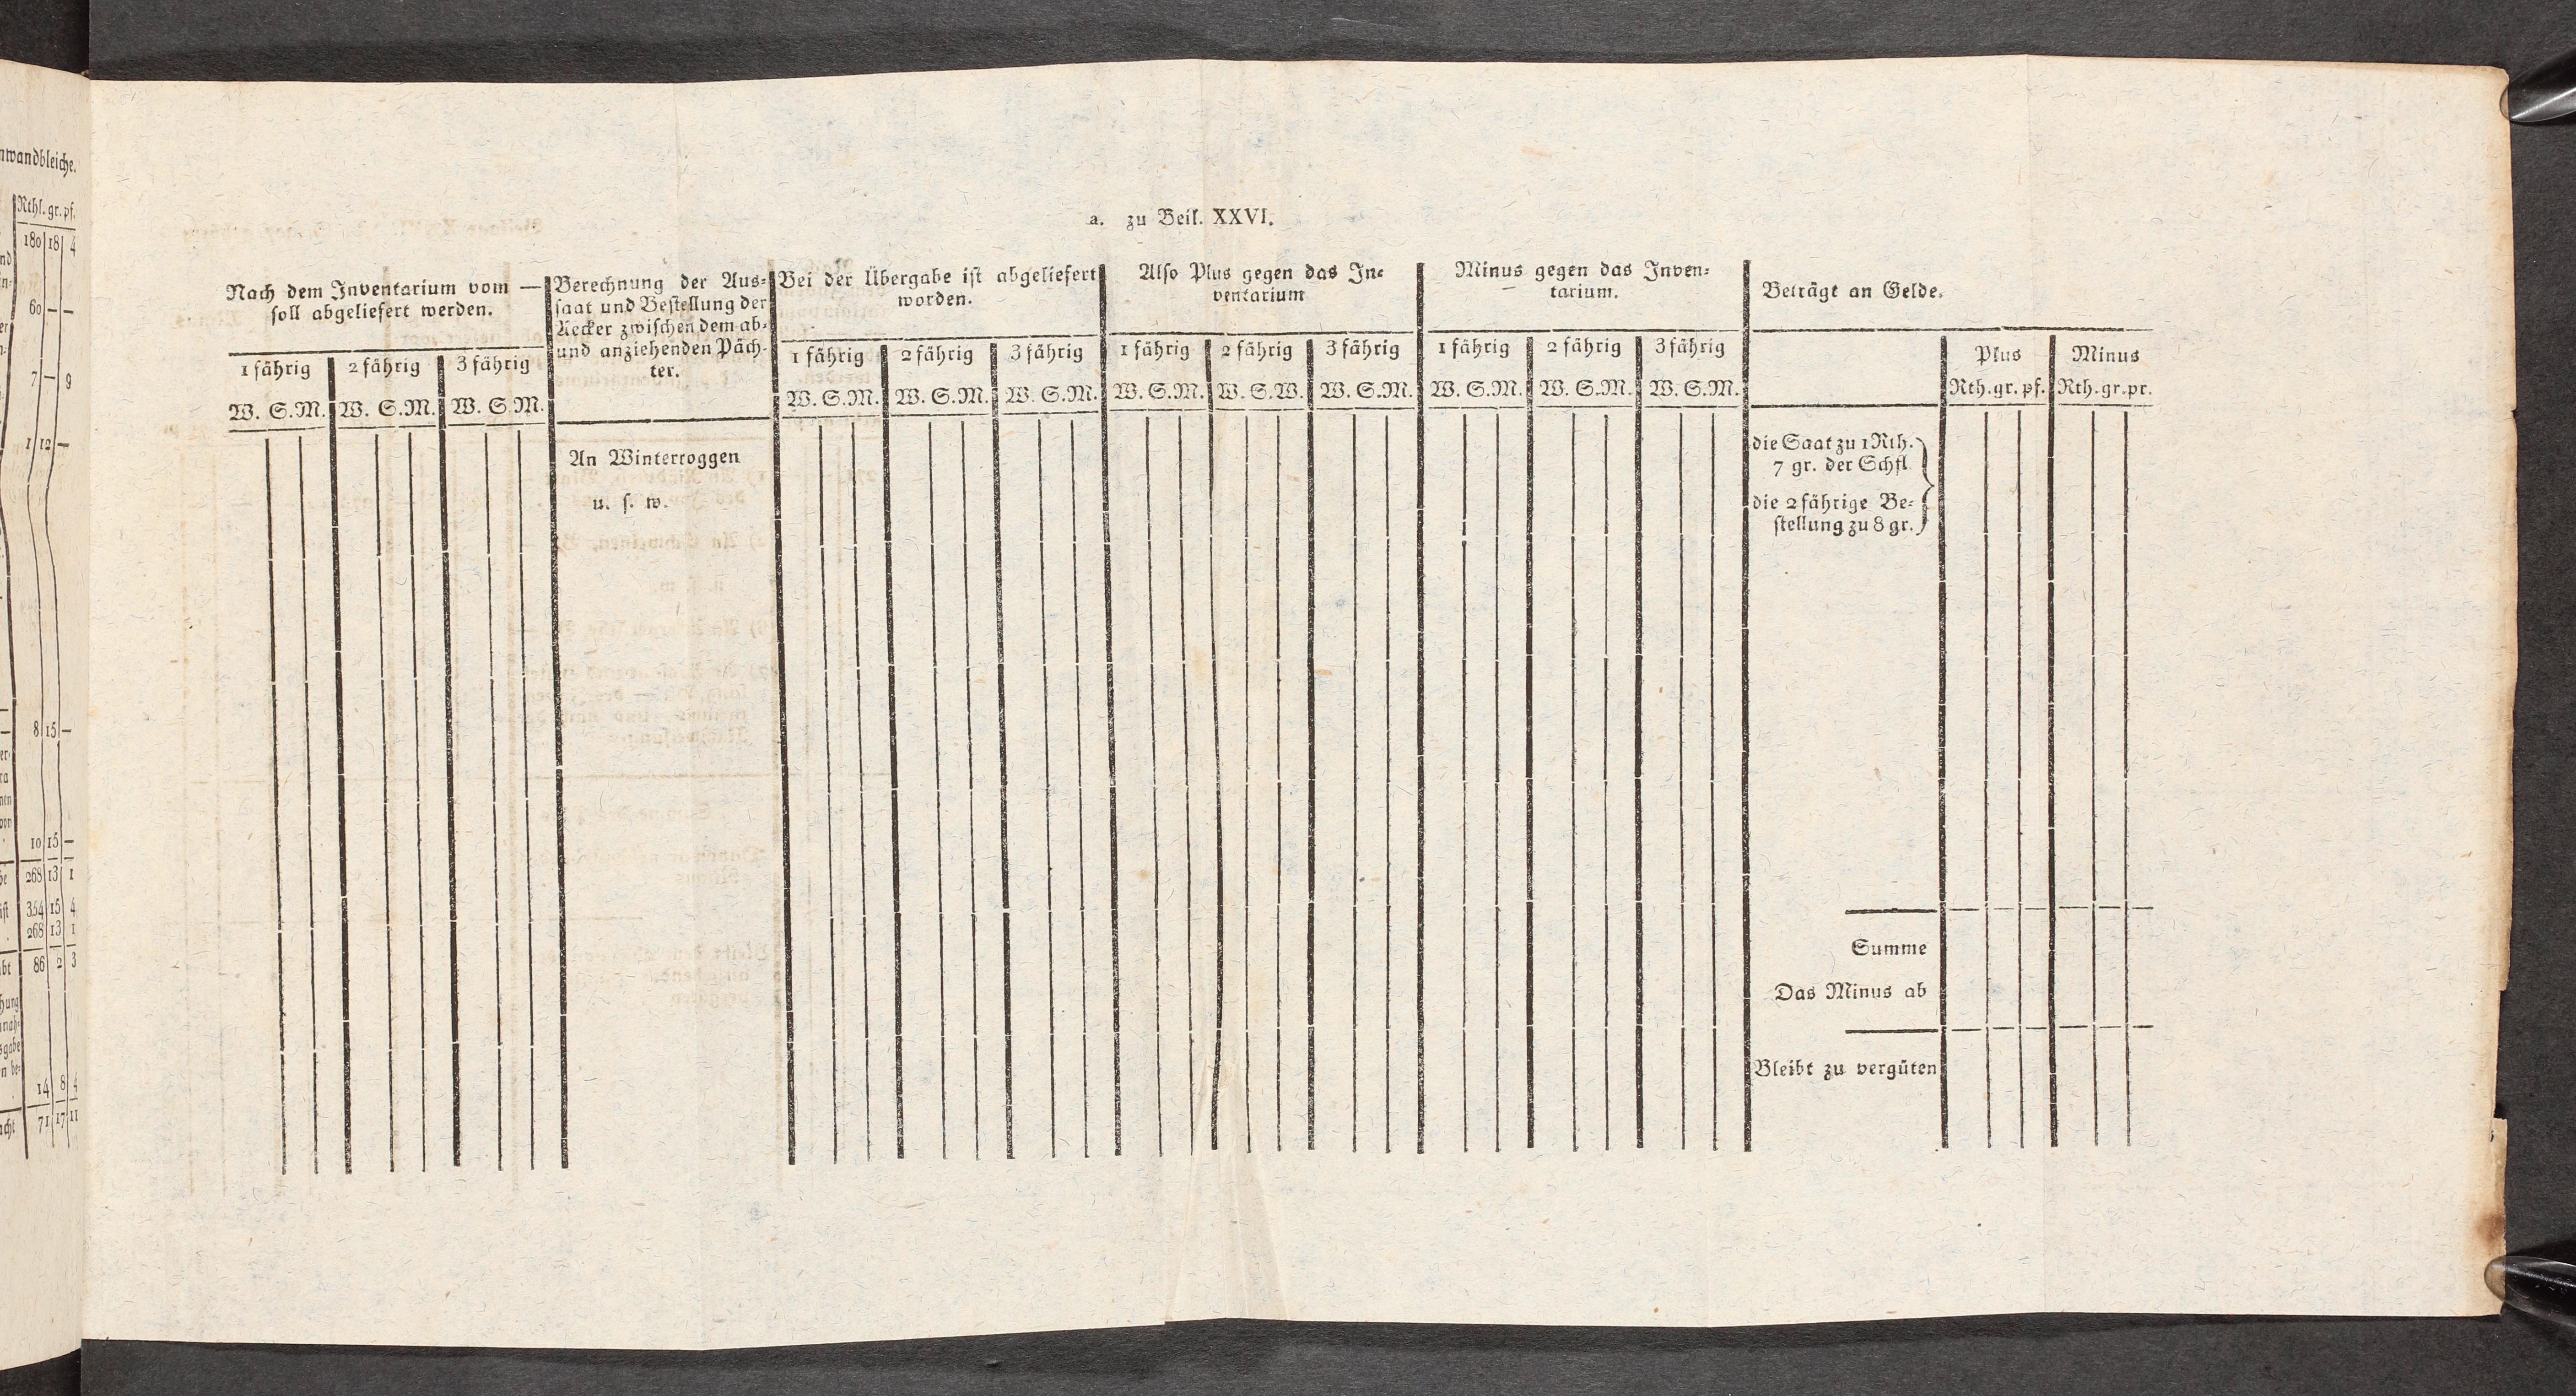 a. zu Beil. XXVI.
Nach dem Inventarium vom —
soll abgeliefert werden.
1 fährig 2 fährig 3 fährig
W. S. M. W. S. M. W. S. M.
Berechnung der Aus-
saat und Bestellung der
Aecker zwischen dem ab-
und anziehenden Päch-
ter.
An Winterroggen
u. s. w.
Bei der Übergabe ist abgeliefert
worden.
1 fährig 2 fährig 3 fährig
W. S. M. W. S. M. W. S. M.
Also Plus gegen das In-
ventarium
1 fährig 2 fährig 3 fährig
W. S. M. W. S. W. W. S. M.
Minus gegen das Inven-
tarium.
1 fährig 2 fährig 3 fährig
W. S. M. W. S. M. W. S. M.
Beträgt an Gelde.
Plus Minus
Rth. gr. pf. Rth. gr. pr.
die Saat zu 1 Rth.
7 gr. der Schfl
die 2 fährige Be-
stellung zu 8 gr.
Summe
Das Minus ab
Bleibt zu vergüten
nwandbleiche.
Rthl. gr. pf.
180 18 4
60 — —
7 — 9
1 12 —
8 15 —
10 15 —
268 13 1
354 15 4
268 13 1
86 2 3
14 8 4
71 17 11